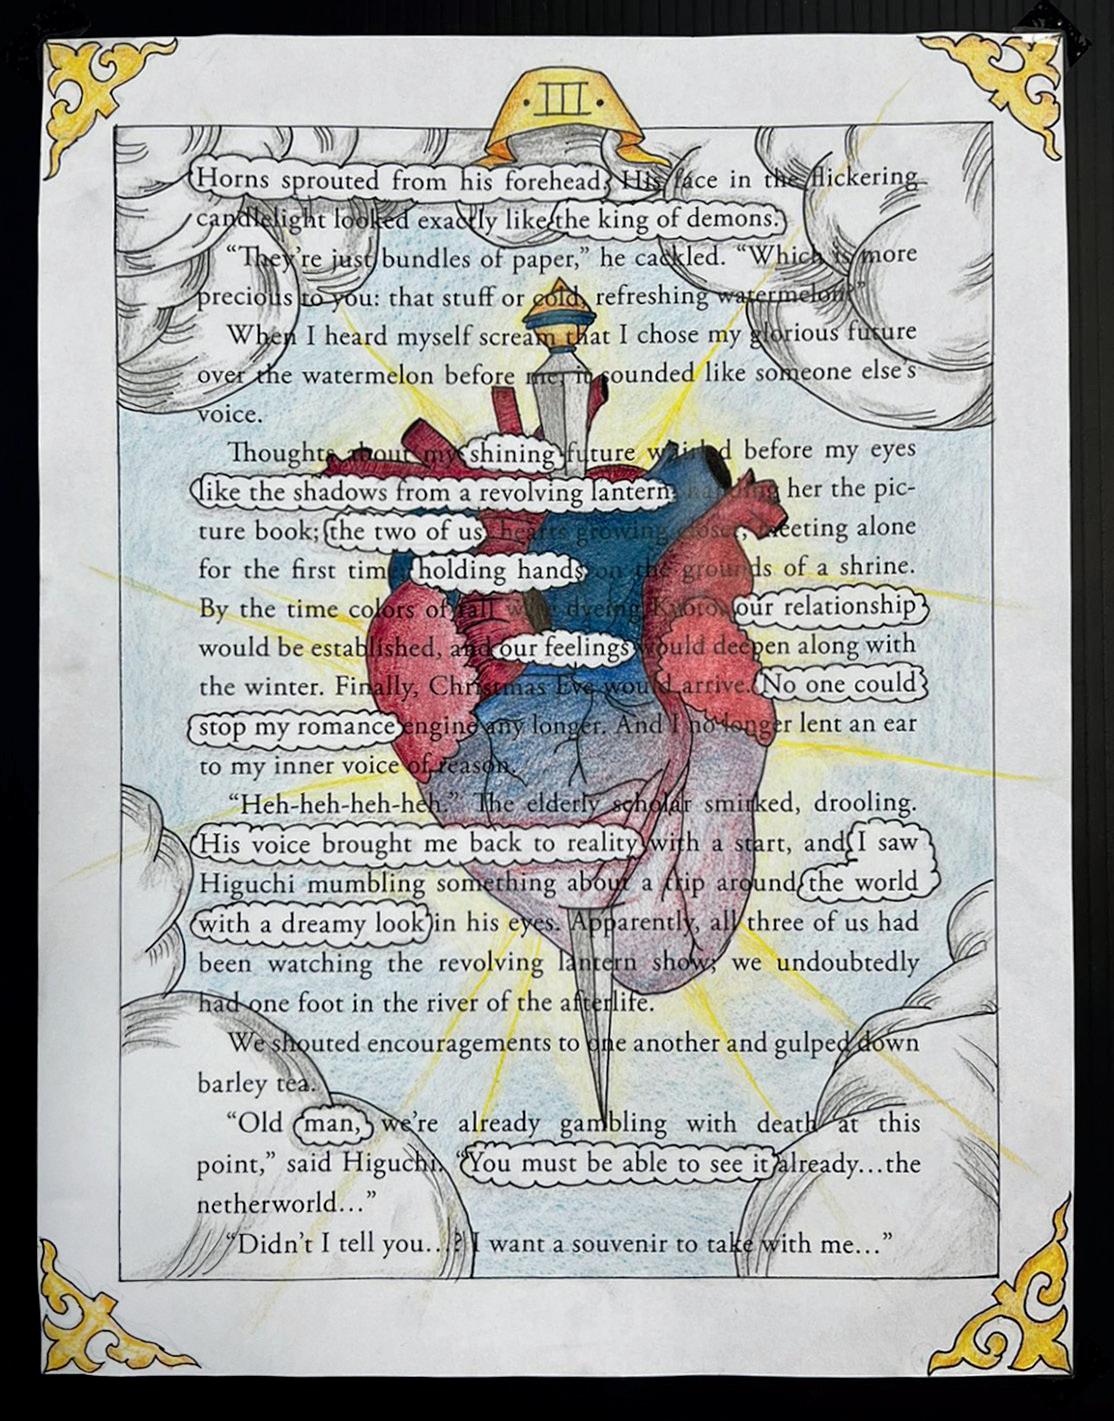 III
Horns sprouted from his forehead. His face in the flickering
candlelight looked exactly like the king of demons.
“They’re just bundles of paper,” he cackled. “Which is more
precious to you: that stuff or cold, refreshing watermelon?”
When I heard myself scream that I chose my glorious future
over the watermelon before me, it sounded like someone else’s
voice.
Thoughts about my shining future whirled before my eyes
like the shadows from a revolving lantern: handing her the pic-
ture book; the two of us, hearts growing closer, meeting alone
for the first time; holding hands on the grounds of a shrine.
By the time colors of fall were dyeing Kyoto, our relationship
would be established, and our feelings would deepen along with
the winter. Finally, Christmas Eve would arrive. No one could
stop my romance engine any longer. And I no longer lent an ear
to my inner voice of reason.
“Heh-heh-heh-heh.” The elderly scholar smirked, drooling.
His voice brought me back to reality with a start, and I saw
Higuchi mumbling something about a trip around the world
with a dreamy look in his eyes. Apparently, all three of us had
been watching the revolving lantern show; we undoubtedly
had one foot in the river of the afterlife.
We shouted encouragements to one another and gulped down
barley tea.
“Old man, we’re already gambling with death at this
point,” said Higuchi. “You must be able to see it already…the
netherworld…”
“Didn’t I tell you…? I want a souvenir to take with me…”